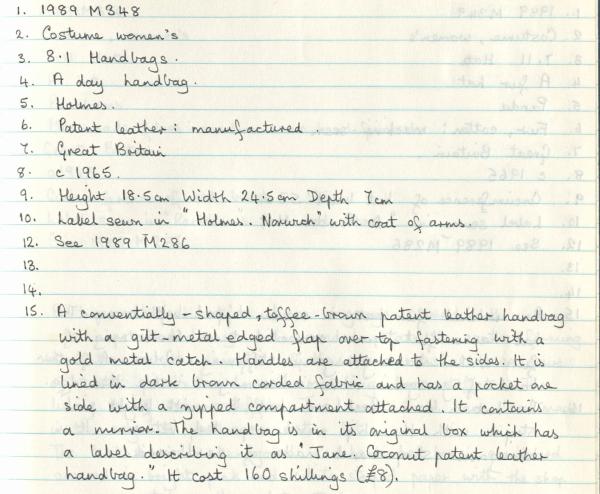 1. 1989 M348
2. Costume women's
3. 8.1 Handbags.
4. A day handbag.
5. Holmes.
6. Patent leather: manufactured.
7. Great Britain
8. c 1965.
9. Height 18.5cm Width 24.5cm Depth 7cm
10. Label sewn in "Holmes. Norwich" with coat of arms.
12. See 1989 M286
13.
14.
15. A conventially-shaped, toffee-brown patent leather handbag
with a gilt-metal edged flap over top fastening with a
gold metal catch. Handles are attached to the sides. It is
lined in dark brown corded fabric and has a pocket one
side with a zipped compartment attached. It contains
a mirror. The handbag is in its original box which has
a label describing it as "Jane. Coconut patent leather
handbag." It cost 160 shillings (£8).